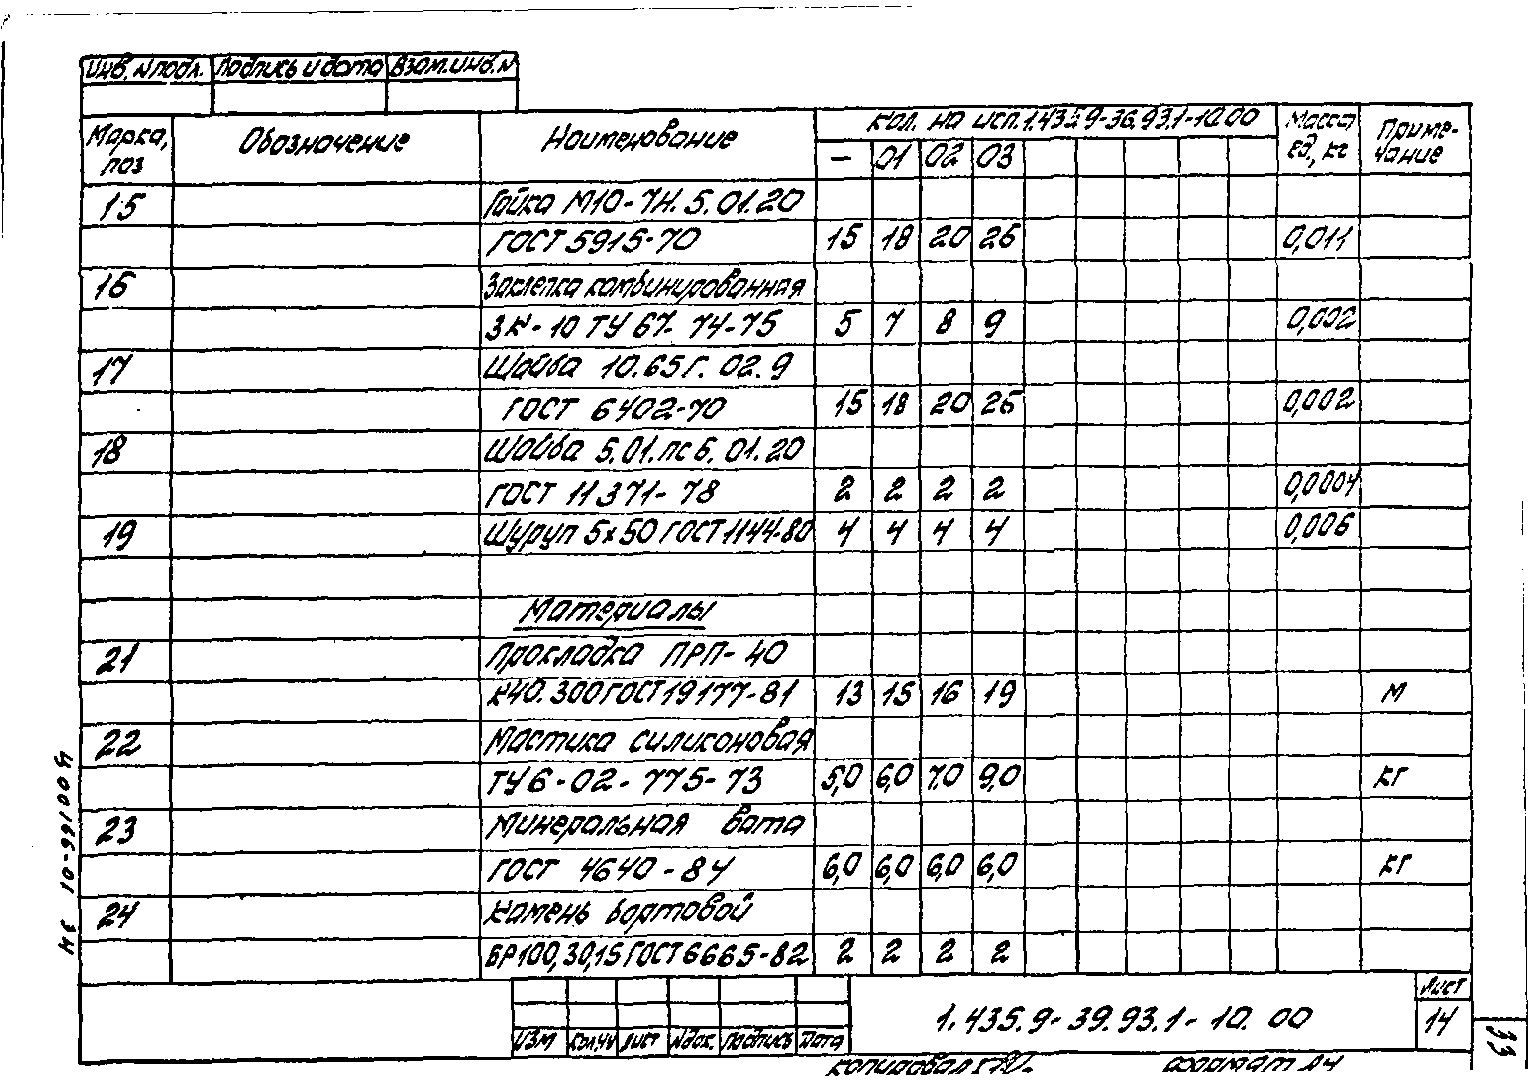 Инв. N подл. Подпись и дата Взам. инв. N
Марка, поз Обозначение Наименование Кол. на исп. 1.435.9-36.93.1-10.00 Масса ед., кг Приме-чание
— 01 02 03
15 Гайка М10-7Н.5.01.20
ГОСТ 5915-70 15 18 20 26 0,011
16 Заклепка комбинированная
ЗК-10 ТУ 67-74-75 5 7 8 9 0,002
17 Шайба 10.65Г.02.9
ГОСТ 6402-70 15 18 20 26 0,002
18 Шайба 5.01.пс6.01.20
ГОСТ 11371-78 2 2 2 2 0,0004
19 Шуруп 5х50 ГОСТ 1144-80 4 4 4 4 0,006
Материалы
21 Прокладка ПРП-40
К40.300 ГОСТ 19177-81 13 15 16 19 М
22 Мастика силиконовая
ТУ 6-02-775-73 5,0 6,0 7,0 9,0 кг
23 Минеральная вата
ГОСТ 4640-84 6,0 6,0 6,0 6,0 кг
24 Камень бортовой
БР100,30,15 ГОСТ 6665-82 2 2 2 2
Изм Кол.уч Лист Nдок. Подпись Дата
1.435.9-39.93.1-10.00
Лист
14
Копировал
Формат А4
33
ч 00166-01 34